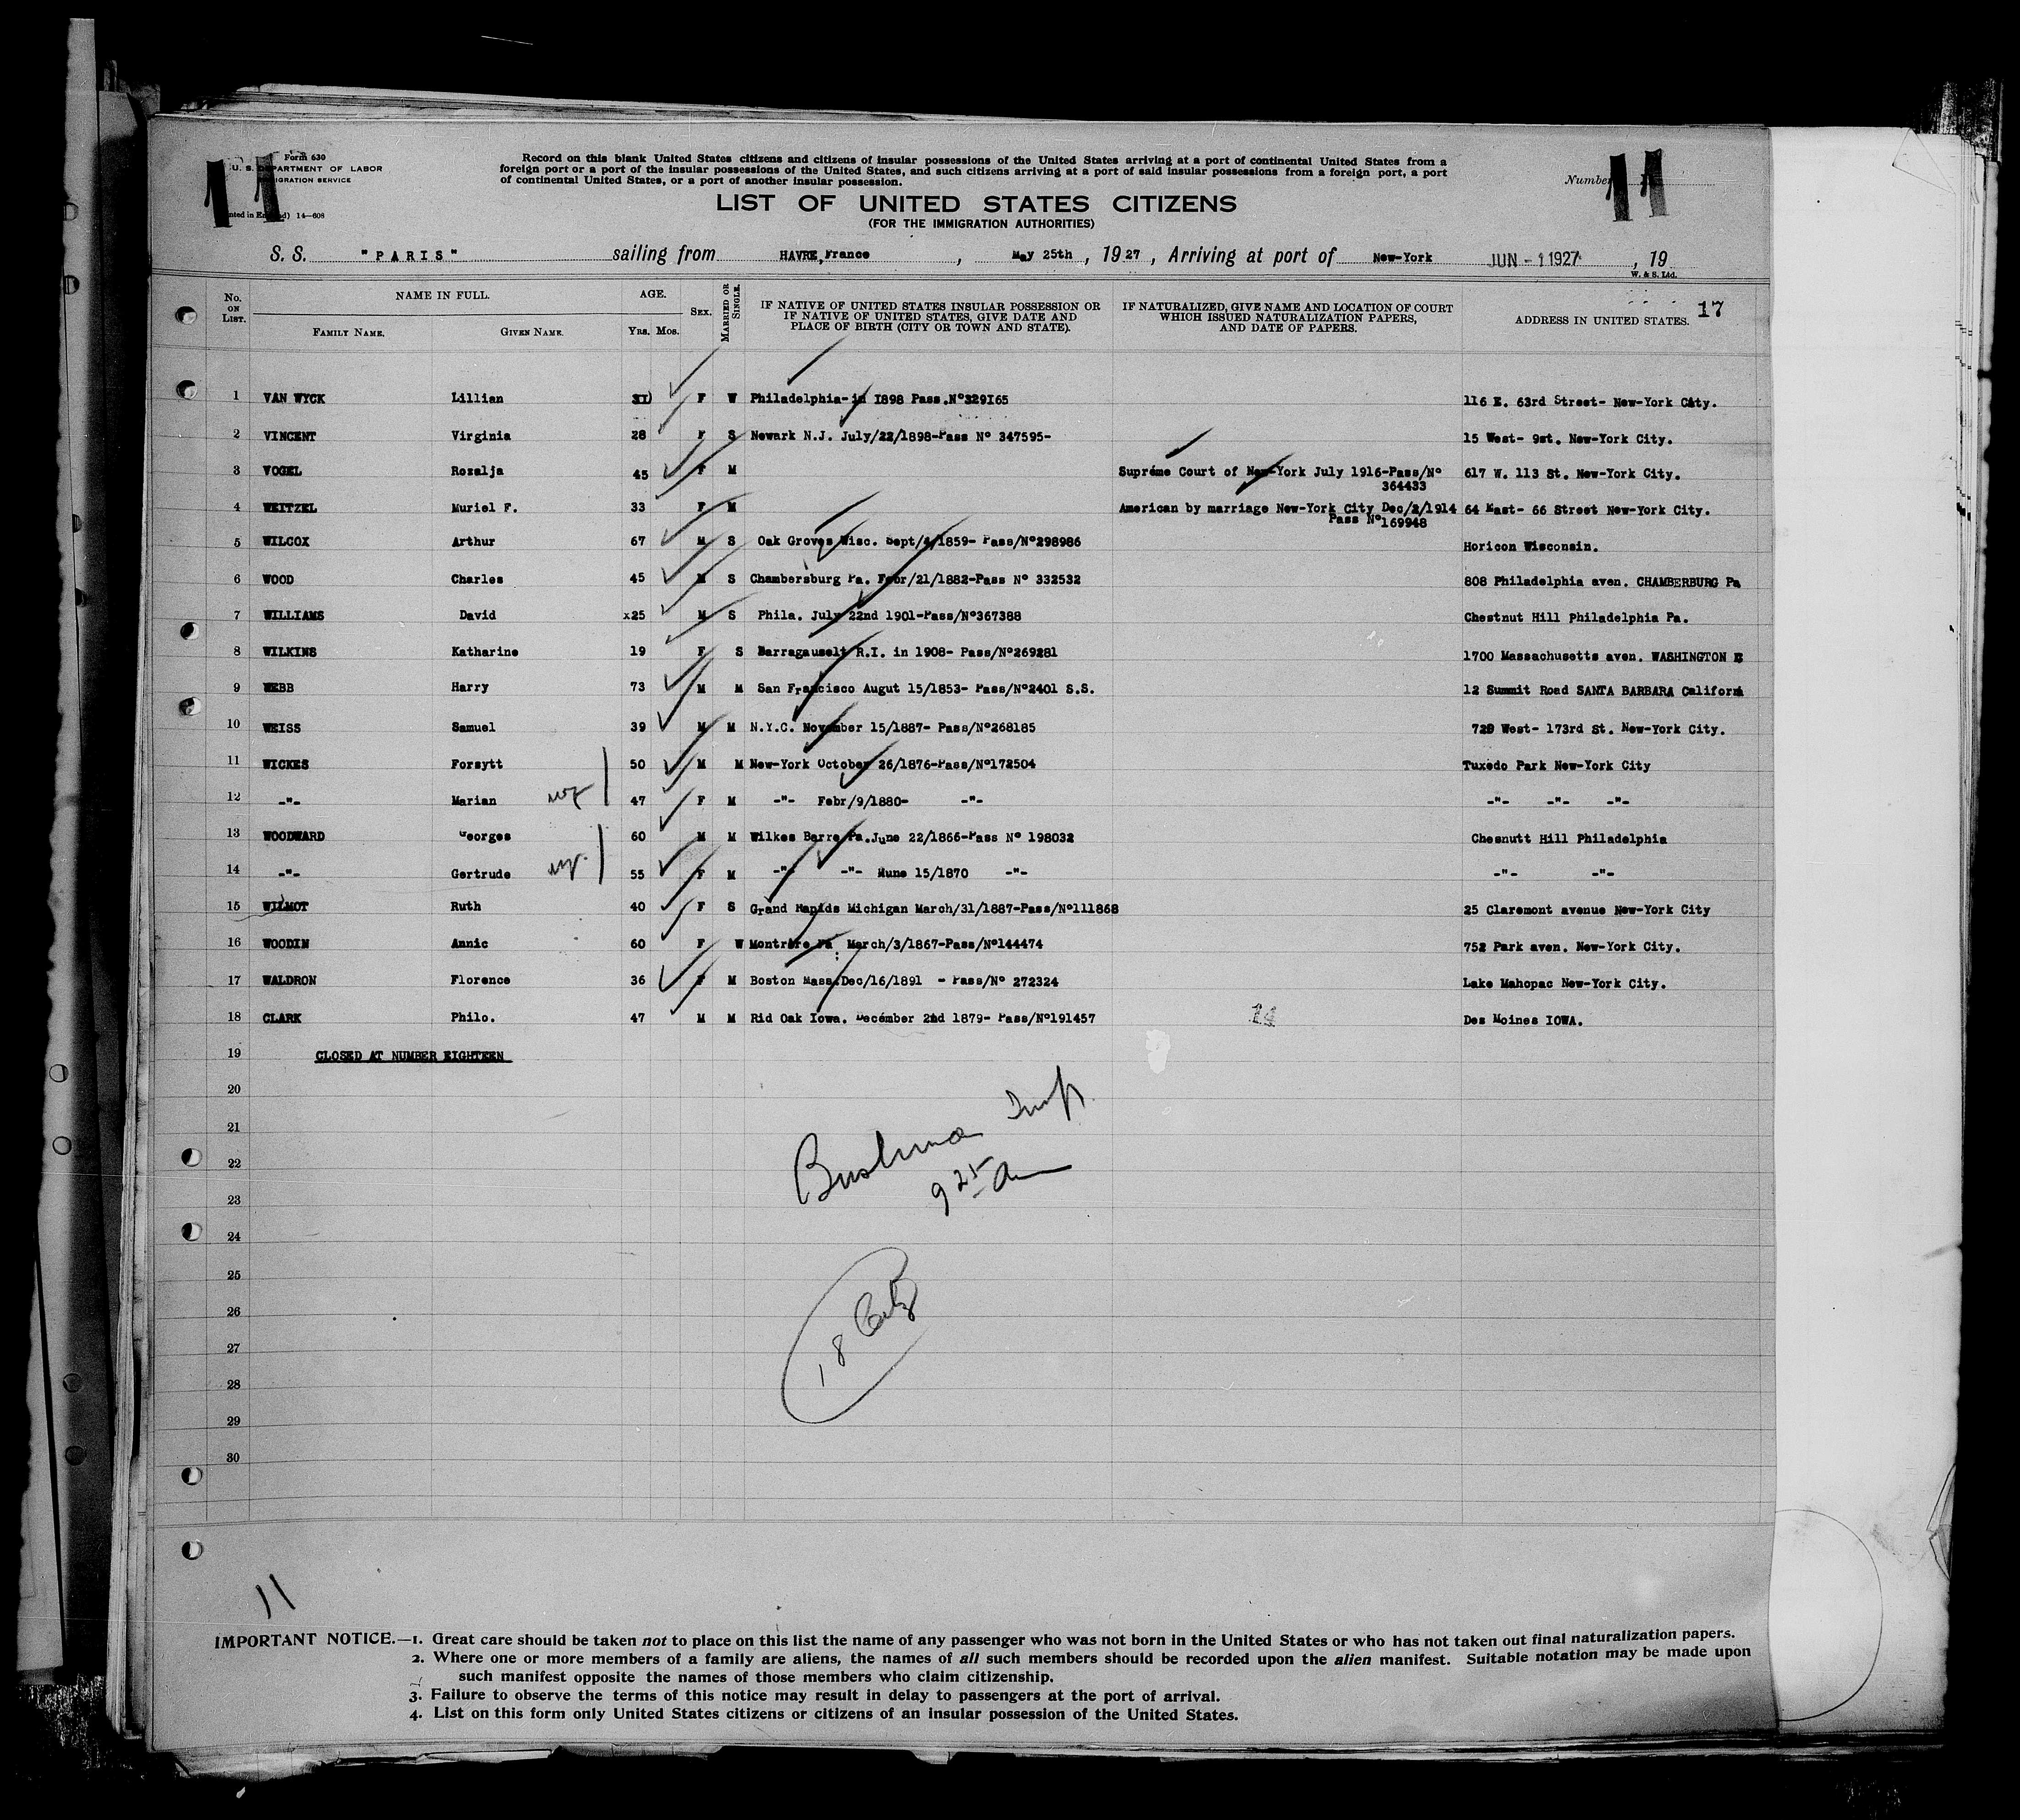 Form 630
U. S. DEPARTMENT OF LABOR
IMMIGRATION SERVICE
14—608
11
11
Record on this blank United States citizens and citizens of insular possessions of the United States arriving at a port of continental United States from a
foreign port or a port of the insular possessions of the United States, and such citizens arriving at a port of said insular possessions from a foreign port, a port
of continental United States, or a port of another insular possession.
Number
LIST OF UNITED STATES CITIZENS
(FOR THE IMMIGRATION AUTHORITIES)
S. S. "PARIS" sailing from HAVRE,France , May 25th , 1927 , Arriving at port of New-York JUN - 1 1927 , 19
W. & S. Ltd.
17
No. ON LIST. NAME IN FULL. FAMILY NAME. GIVEN NAME. AGE. Yrs. Mos. SEX. MARRIED OR SINGLE. IF NATIVE OF UNITED STATES INSULAR POSSESSION OR IF NATIVE OF UNITED STATES, GIVE DATE AND PLACE OF BIRTH (CITY OR TOWN AND STATE). IF NATURALIZED, GIVE NAME AND LOCATION OF COURT WHICH ISSUED NATURALIZATION PAPERS, AND DATE OF PAPERS. ADDRESS IN UNITED STATES.
1 VAN WYCK Lillian F W Philadelphia-in 1898 Pass.N°329165 116 E. 63rd Street- New-York City.
2 VINCENT Virginia 28 F S Newark N.J. July/22/1898-Pass N° 347595- 15 West- 9st. New-York City.
3 VOGEL Rozalja 45 F M Supréme Court of New-York July 1916-Pass/N° 617 W. 113 St. New-York City.
364433
4 WEITZEL Muriel F. 33 F M American by marriage New-York City Dec/2/1914 64 East- 66 Street New-York City.
Pass N°169948
5 WILCOX Arthur 67 M S Oak Groves Wisc. Sept/4/1859- Pass/N°298986 Horicon Wisconsin.
6 WOOD Charles 45 M S Chambersburg Pa. Febr/21/1882-Pass N° 332532 808 Philadelphia aven. CHAMBERBURG Pa
7 WILLIAMS David x25 M S Phila. July 22nd 1901-Pass/N°367388 Chestnut Hill Philadelphia Pa.
8 WILKINS Katharine 19 F S R.I. in 1908- Pass/N°269281 1700 Massachusetts aven. WASHINGTON
9 WEBB Harry 73 M M San Francisco Augut 15/1853- Pass/N°2401 S.S. 12 Summit Road SANTA BARBARA Californi
10 WEISS Samuel 39 M M N.Y.C. November 15/1887- Pass/N°268185 729 West- 173rd St. New-York City.
11 WICKES Forsytt 50 M M New-York October 26/1876-Pass/N°172504 Tuxedo Park New-York City
12 -"- Marian 47 F M -"- Febr/9/1880- -"- -"- -"- -"-
13 WOODWARD Georges 60 M M Wilkes Barre Pa.June 22/1866-Pass N° 198032 Chesnutt Hill Philadelphia
14 -"- Gertrude 55 F M -"- -"- Mune 15/1870 -"- -"- -"-
15 WILMOT Ruth 40 F S Grand Rapids Michigan March/31/1887-Pass/N°111868 25 Claremont avenue New-York City
16 WOODIN Annic 60 F W Montrère Pa March/3/1867-Pass/N°144474 752 Park aven. New-York City.
17 WALDRON Florence 36 F M Boston Mass.Dec/16/1891 - Pass/N° 272324 Lake Mahopac New-York City.
18 CLARK Philo. 47 M M Rid Oak Iowa. Décember 2nd 1879- Pass/N°191457 Des Moines IOWA.
14
19 CLOSED AT NUMBER EIGHTEEN
20
21
22
23
24
25
26
27
28
29
30
9 25 Am
18 Citz
11
IMPORTANT NOTICE.—1. Great care should be taken not to place on this list the name of any passenger who was not born in the United States or who has not taken out final naturalization papers.
2. Where one or more members of a family are aliens, the names of all such members should be recorded upon the alien manifest. Suitable notation may be made upon
such manifest opposite the names of those members who claim citizenship.
3. Failure to observe the terms of this notice may result in delay to passengers at the port of arrival.
4. List on this form only United States citizens or citizens of an insular possession of the United States.